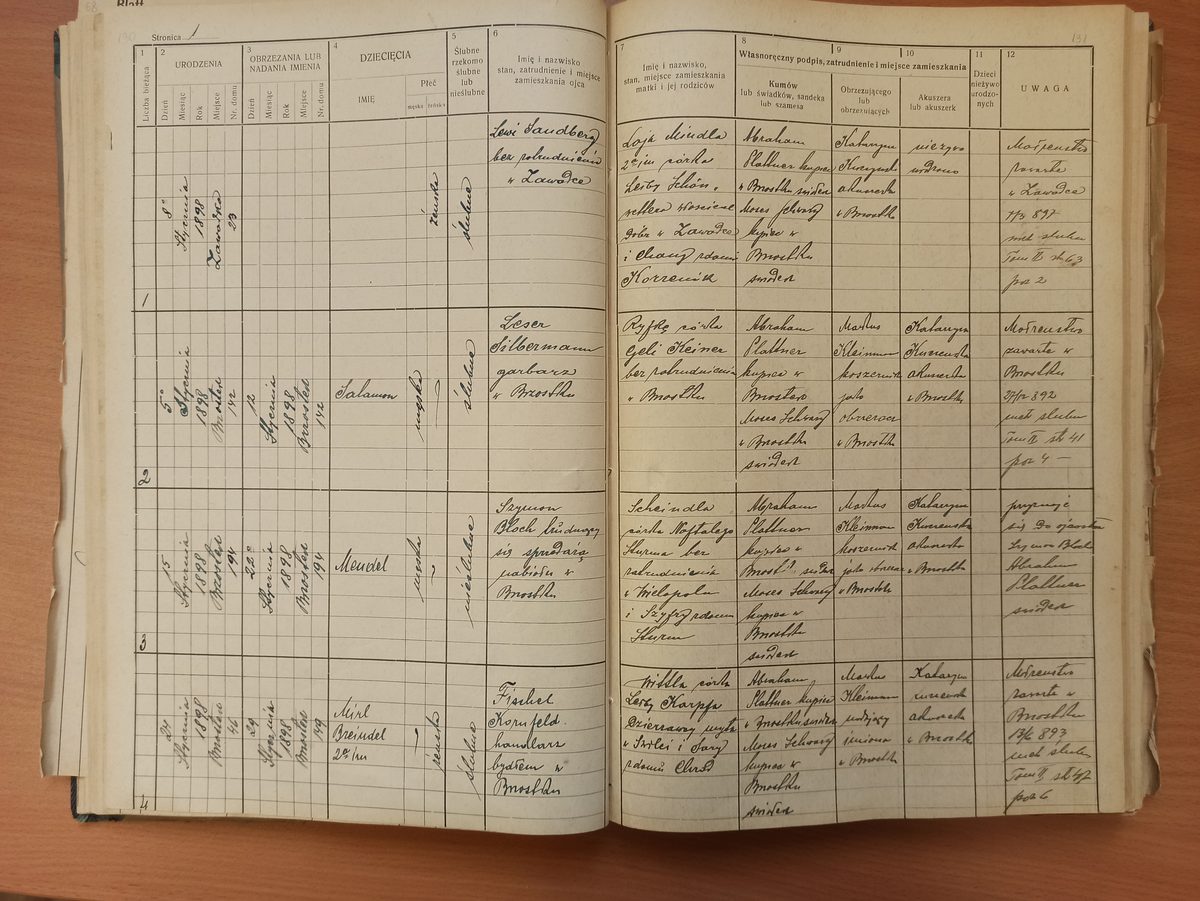 Blatt
Stronica 1
131
1
Liczba bieżąca
2
URODZENIA
Dzień
Miesiąc
Rok
Miejsce
Nr. domu
3
OBRZEZANIA LUB
NADANIA IMIENIA
Dzień
Miesiąc
Rok
Miejsce
Nr. domu
4
DZIECIĘCIA
IMIĘ
Płeć
męska
żeńska
5
Ślubne
rzekomo
ślubne
lub
nieślubne
6
Imię i nazwisko
stan, zatrudnienie i miejsce
zamieszkania ojca
7
Imię i nazwisko,
stan, miejsce zamieszkania
matki i jej rodziców
Własnoręczny podpis, zatrudnienie i miejsce zamieszkania
8
Kumów
lub świadków, sandeka
lub szamesa
9
Obrzezującego
lub
obrzezujących
10
Akuszera
lub akuszerk
11
Dzieci
nieżywo
urodzo-
nych
12
UWAGA
1
8
Stycznia
1898
Zawadka
23
żeńska
ślubne
Lewi Sandberg
bez zatrudnienia
w Zawadce
Laja Mindla
2ga im córka
Leiby Schön,
wettera właściciel
dóbr w Zawadce
i Chany zdomu
Korzennik
Abraham
Plattner kupiec
w Brzostku świadek
Moses Schwarz
kupiec w
Brzostku
świadek
Katarzyna
Kuczynski
akuszerka
w Brzostku
nieżywo
urodzono
Małżeństwo
zawarte
w Zawadce
897
met ślubu
Tom II str 63
poz 2
2
5
Stycznia
1898
Brostek
142
12
Stycznia
1898
Brzostek
142
Salamon
męska
ślubne
Leser
Silbermann
garbarz
w Brzostku
Ryfkę córka
Geli Keiner
bez zatrudnienia
w Brzostku
Abraham
Plattner
kupiec w
Brzostku
Moses Schwarz
w Brzostku
świadek
Markus
Kleinman
koszernik
jako
obrzezacz
w Brzostku
Katarzyna
Kuczewska
akuszerka
w Brzostku
Małżeństwo
zawarte w
Brzostku
892
met ślubu
Tom II str 41
poz 4 —
3
15
Stycznia
1898
Brzostek
194
22
Stycznia
1898
Brzostek
194
Mendel
męska
nieślubne
Szymon
Bloch trudniący
się sprzedażą
nabiału w
Brzostku
Scheindla
córka Naftalego
Sturma bez
zatrudnienia
w Wielopolu
i Szyfry zdomu
Sturm
Abraham
Plattner
kupiec w
Brzostku świadek
Moses Schwarz
kupiec w
Brzostku
świadek
Markus
Kleinman
koszernik
jako obrzezacz
w Brzostku
Katarzyna
Kuczewska
akuszerka
w Brzostku
przyznaje
się do ojcostwa
Szymon Bloch
Abraham
Plattner
świadek
4
24
Stycznia
1898
Brzostek
46
29
Stycznia
1898
Brzostek
149
Mirl
Breindel
2ga im
żeńska
ślubne
Fischel
Kornfeld
handlarz
bydłem w
Brzostku
Wittla córka
Leiby Karpfa
Dzierżawcy myta
w i Sary
zdomu
Abraham
Plattner kupiec
w Brzostku świadek
Moses Schwarz
kupiec w
Brzostku
świadek
Markus
Kleinman
nadający
imiona
w Brzostku
Katarzyna
akuszerka
w Brzostku
Małżeństwo
zawarte w
Brzostku
13/6 893
met ślubu
Tom II str 47
poz 6